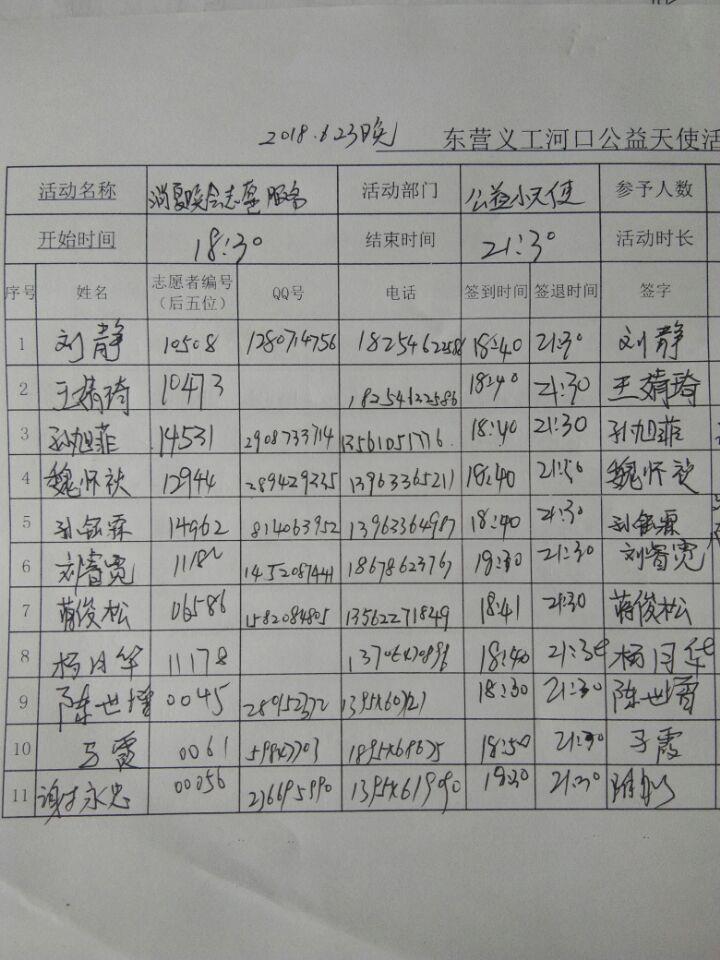 2018.6.23晚 东营义工河口公益天使活
活动名称 消夏晚会志愿服务 活动部门 公益小天使 参予人数
开始时间 18:30 结束时间 21:30 活动时长
序号 姓名 志愿者编号（后五位） QQ号 电话 签到时间 签退时间 签字
1 刘静 10508 1280714756 18254622586 18:40 21:30 刘静
2 王婧琦 10473 18254622586 18:40 21:30 王婧琦
3 孙旭菲 14531 2908733714 13561051776 18:40 21:30 孙旭菲
4 魏怀 12944 289429335 13963365211 18:40 21:30 魏怀
5 孙钰霖 14962 814063952 13963364987 18:40 21:30 孙钰霖
6 刘睿宽 1452087441 18678623767 21:30 刘睿宽
7 蒋俊松 06586 1582084805 13562271849 18:41 21:30 蒋俊松
8 杨月华 11178 18:40 21:30 杨月华
9 陈世增 0045 18:30 21:30 陈世增
10 马霞 0061 18:50 21:30 马霞
11 谢永忠 00056 21:30